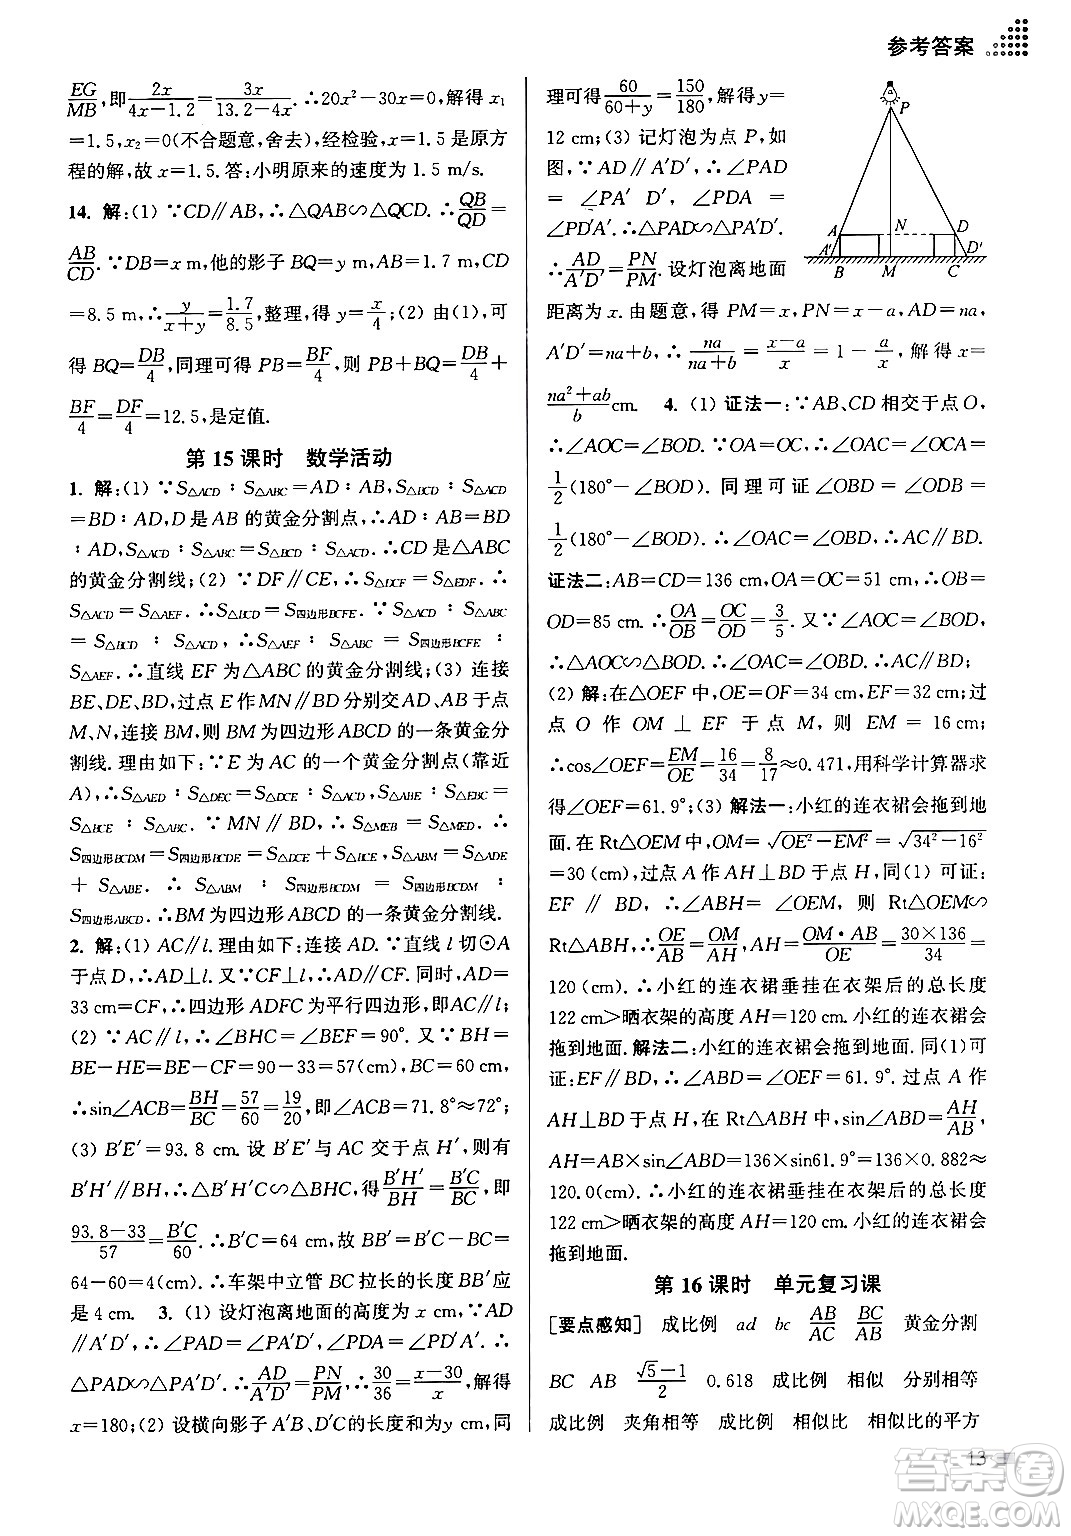 参考答案
EG/MB,即2x/(4x-1.2)=3x/(13.2-4x).∴20x²-30x=0,解得 x₁
=1.5,x₂=0(不合题意,舍去),经检验,x=1.5是原方
程的解,故 x=1.5.答:小明原来的速度为 1.5 m/s.
14. 解:(1) ∵CD∥AB,∴△QAB∽△QCD.∴QB/QD=
AB/CD.∵DB=x m,他的影子 BQ=y m,AB=1.7 m,CD
=8.5 m,∴y/(x+y)=1.7/8.5,整理,得 y=x/4;(2) 由(1),可
得 BQ=DB/4,同理可得 PB=BF/4,则 PB+BQ=DB/4+
BF/4=DF/4=12.5,是定值.
第 15 课时 数学活动
1. 解:(1) ∵S△ACD∶S△ABC=AD∶AB,S△BCD∶S△ACD
=BD∶AD,D 是 AB 的黄金分割点,∴AD∶AB=BD
∶AD,S△ACD∶S△ABC=S△BCD∶S△ACD.∴CD是△ABC
的黄金分割线;(2) ∵DF∥CE,∴S△DCF=S△EDF.∴
S△ACD=S△AEF.∴S△BCD=S四边形BCFE.∵S△ACD∶S△ABC
=S△BCD∶S△ACD,∴S△AEF∶S△ABC=S四边形BCFE∶
S△AEF.∴直线 EF 为△ABC 的黄金分割线;(3) 连接
BE,DE,BD,过点 E作 MN∥BD 分别交AD、AB 于点
M、N,连接 BM,则 BM 为四边形 ABCD 的一条黄金分
割线.理由如下:∵E 为 AC 的一个黄金分割点(靠近
A),∴S△AED∶S△DEC=S△DCE∶S△ACD,S△ABE∶
S△BCE=S△BCE∶S△ABC.∵MN∥BD,∴S△MEB=S△MED.∴
S四边形BCDM=S四边形BCDE=S△DCE+S△BCE,S△ABM=S△ADE
+S△ABE.∴S△ABM∶S四边形BCDM=S四边形BCDM∶
S四边形ABCD.∴BM为四边形 ABCD 的一条黄金分割线.
2. 解:(1) AC∥l.理由如下:连接 AD.∵直线 l 切⊙A
于点 D,∴AD⊥l.又∵CF⊥l,∴AD∥CF.同时,AD=
33 cm=CF,∴四边形 ADFC 为平行四边形,∴AC∥l;
(2) ∵AC∥l,∴∠BHC=∠BEF=90°.又∵BH=
BE-HE=BE-CF=90-33=57(cm),BC=60 cm,
∴sin∠ACB=BH/BC=57/60=19/20,即∠ACB=71.8°≈72°;
(3) B′E′=93.8 cm.设 B′E′与 AC 交于点 H′,则有
B′H′∥BH,∴△B′H′C∽△BHC,得B′H′/BH=B′C/BC,即
(93.8-33)/57=B′C/60.∴B′C=64 cm,故 BB′=B′C-BC=
64-60=4(cm),∴车架中立管 BC 拉长的长度 BB′应
是 4 cm. 3. (1) 设灯泡离地面的高度为 x cm,∵AD
∥A′D′,∴∠PAD=∠PA′D′,∠PDA=∠PD′A′.∴
△PAD∽△PA′D′.∴AD/A′D′=PN/PM,∴30/36=(x-30)/x,解得
x=180;(2) 设横向影子 A′B、D′C的长度和为y cm,同
理可得60/(60+y)=150/180,解得 y=
12 cm;(3) 记灯泡为点 P,如
图,∵AD∥A′D′,∴∠PAD
=∠PA′D′,∠PDA=
∠PD′A′.∴△PAD∽△PA′D′.
∴AD/A′D′=PN/PM.设灯泡离地面
P
A N D
A′ D′
B M C
距离为 x.由题意,得 PM=x,PN=x-a,AD=na,
A′D′=na+b,∴na/(na+b)=(x-a)/x=1-a/x,解得 x=
(na²+ab)/b cm. 4. (1) 证法一:∵AB、CD 相交于点 O,
∴∠AOC=∠BOD.∵OA=OC,∴∠OAC=∠OCA=
1/2(180°-∠BOD).同理可证∠OBD=∠ODB=
1/2(180°-∠BOD),∴∠OAC=∠OBD,∴AC∥BD.
证法二:AB=CD=136 cm,OA=OC=51 cm,∴OB=
OD=85 cm.∴OA/OB=OC/OD=3/5.又∵∠AOC=∠BOD,
∴△AOC∽△BOD.∴∠OAC=∠OBD.∴AC∥BD;
(2) 解:在△OEF 中,OE=OF=34 cm,EF=32 cm;过
点 O 作 OM⊥EF 于点 M,则 EM=16 cm;
∴cos∠OEF=EM/OE=16/34=8/17≈0.471,用科学计算器求
得∠OEF=61.9°;(3) 解法一:小红的连衣裙会拖到地
面.在 Rt△OEM 中,OM=√(OE²-EM²)=√(34²-16²)
=30 (cm);过点 A 作 AH⊥BD 于点 H,同(1)可证:
EF∥BD,∴∠ABH=∠OEM,则 Rt△OEM∽
Rt△ABH,∴OE/AB=OM/AH,AH=OM·AB/OE=30×136/34=
120 (cm).∴小红的连衣裙垂挂在衣架后的总长度
122 cm>晒衣架的高度 AH=120 cm.小红的连衣裙会
拖到地面.解法二:小红的连衣裙会拖到地面.同(1)可
证:EF∥BD,∴∠ABD=∠OEF=61.9°.过点 A 作
AH⊥BD 于点 H,在 Rt△ABH 中,sin∠ABD=AH/AB,
AH=AB×sin∠ABD=136×sin61.9°=136×0.882≈
120.0(cm).∴小红的连衣裙垂挂在衣架后的总长度
122 cm>晒衣架的高度 AH=120 cm.小红的连衣裙会
拖到地面.
第 16 课时 单元复习课
[要点感知] 成比例 ad bc AB/AC BC/AB 黄金分割
BC AB (√5-1)/2 0.618 成比例 相似 分别相等
成比例 夹角相等 成比例 相似比 相似比的平方
13
答案圈
MXQE.COM